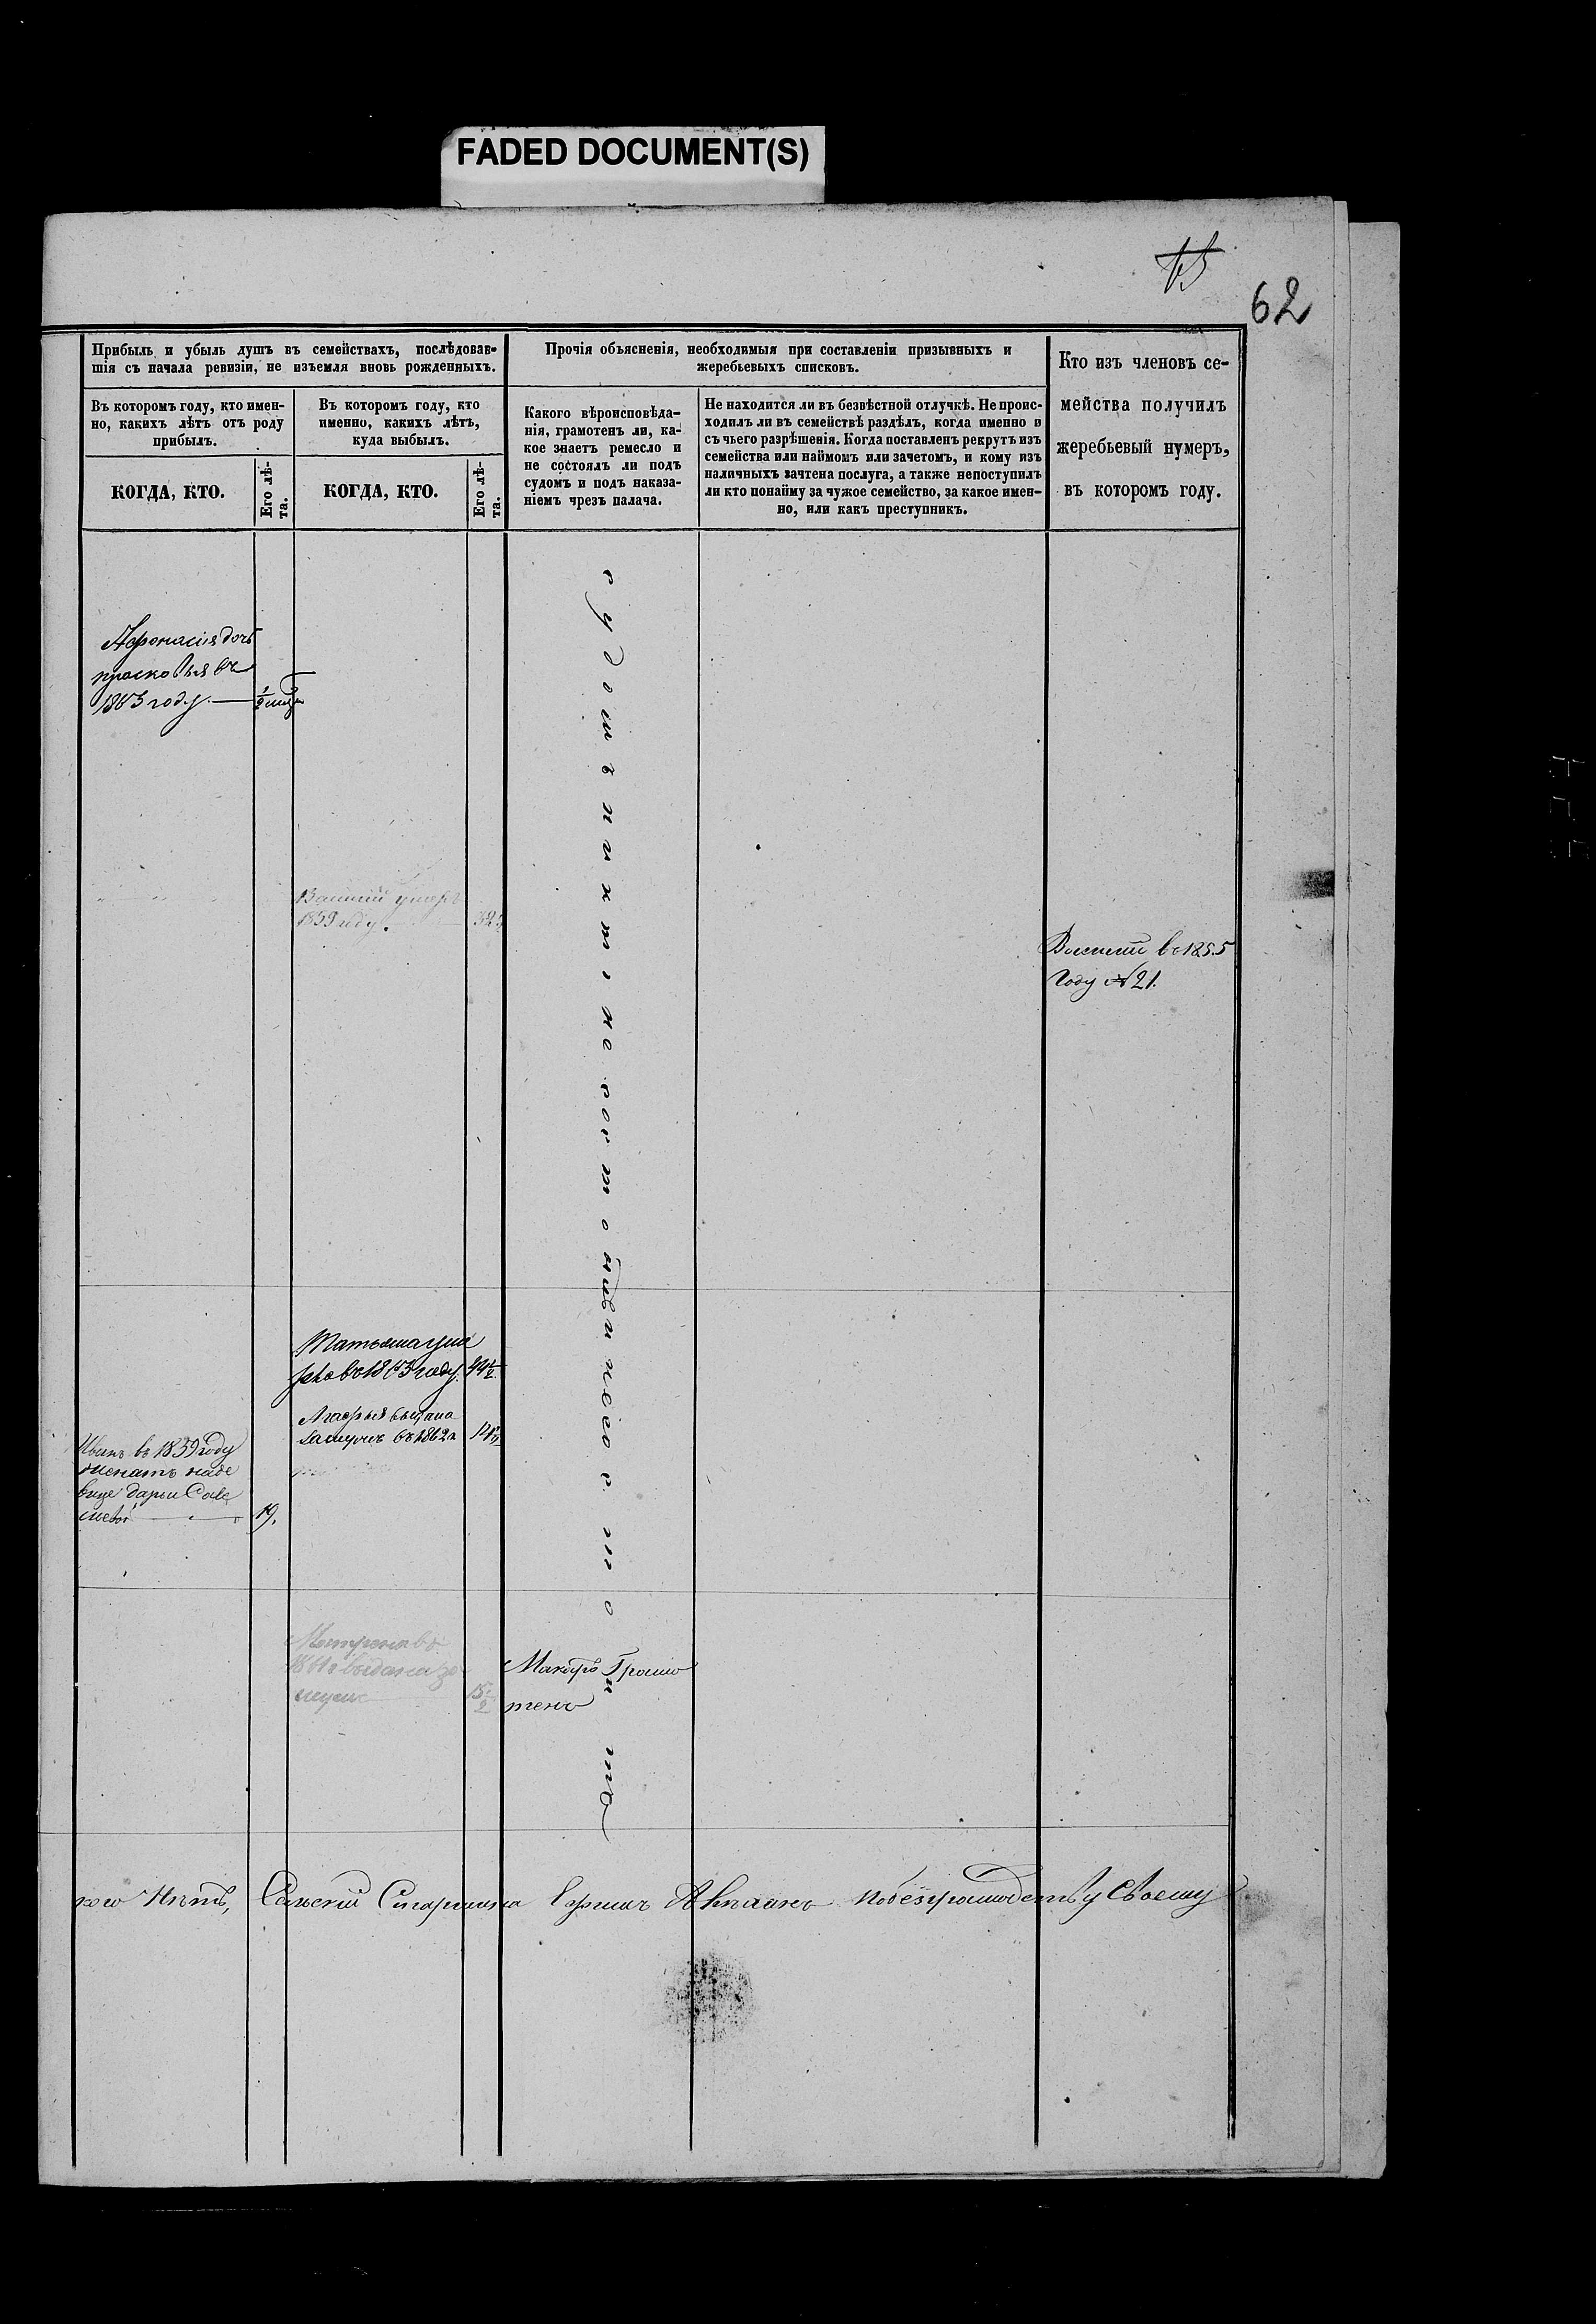 FADED DOCUMENT(S)
62
Прибыль и убыль душъ въ семействахъ, послѣдовав-
шія съ начала ревизіи, не изъемля вновь рожденныхъ.
Прочія объясненія, необходимыя при составленіи призывныхъ и
жеребьевыхъ списковъ.
Кто изъ членовъ се-
мейства получилъ
жеребьевый нумеръ,
въ которомъ году.
Въ которомъ году, кто имен-
но, какихъ лѣтъ отъ роду
прибылъ.
Въ которомъ году, кто
именно, какихъ лѣтъ,
куда выбылъ.
Какого вѣроисповѣда-
нія, грамотенъ ли, ка-
кое знаетъ ремесло и
не состоялъ ли подъ
судомъ и подъ наказа-
ніемъ чрезъ палача.
Не находится ли въ безвѣстной отлучкѣ. Не проис-
ходилъ ли въ семействѣ раздѣлъ, когда именно и
съ чьего разрѣшенія. Когда поставленъ рекрутъ изъ
семейства или наймомъ или зачетомъ, и кому изъ
наличныхъ зачтена послуга, а также непоступилъ
ли кто понайму за чужое семейство, за какое имен-
но, или какъ преступникъ.
КОГДА, КТО.
Его лѣ-
та.
КОГДА, КТО.
Его лѣ-
та.
Афонасия дочь
прасковья въ
1863 году 1/2
Василий умеръ
1859 году. 32
Василий въ 1855
Году №21.
Татьяна уме
рла въ 1863 году. 44 1/2
выдана
замужъ въ 1862 г
Иванъ въ 1859 году
женатъ на де
вице дарьи Саве
19.
Матрена въ
1861 г выдана за
мужъ 18 1/2
Макаръ Грамо
тенъ
Нѣтъ, Сельский Старшина Ефимъ побезграмодству Своему